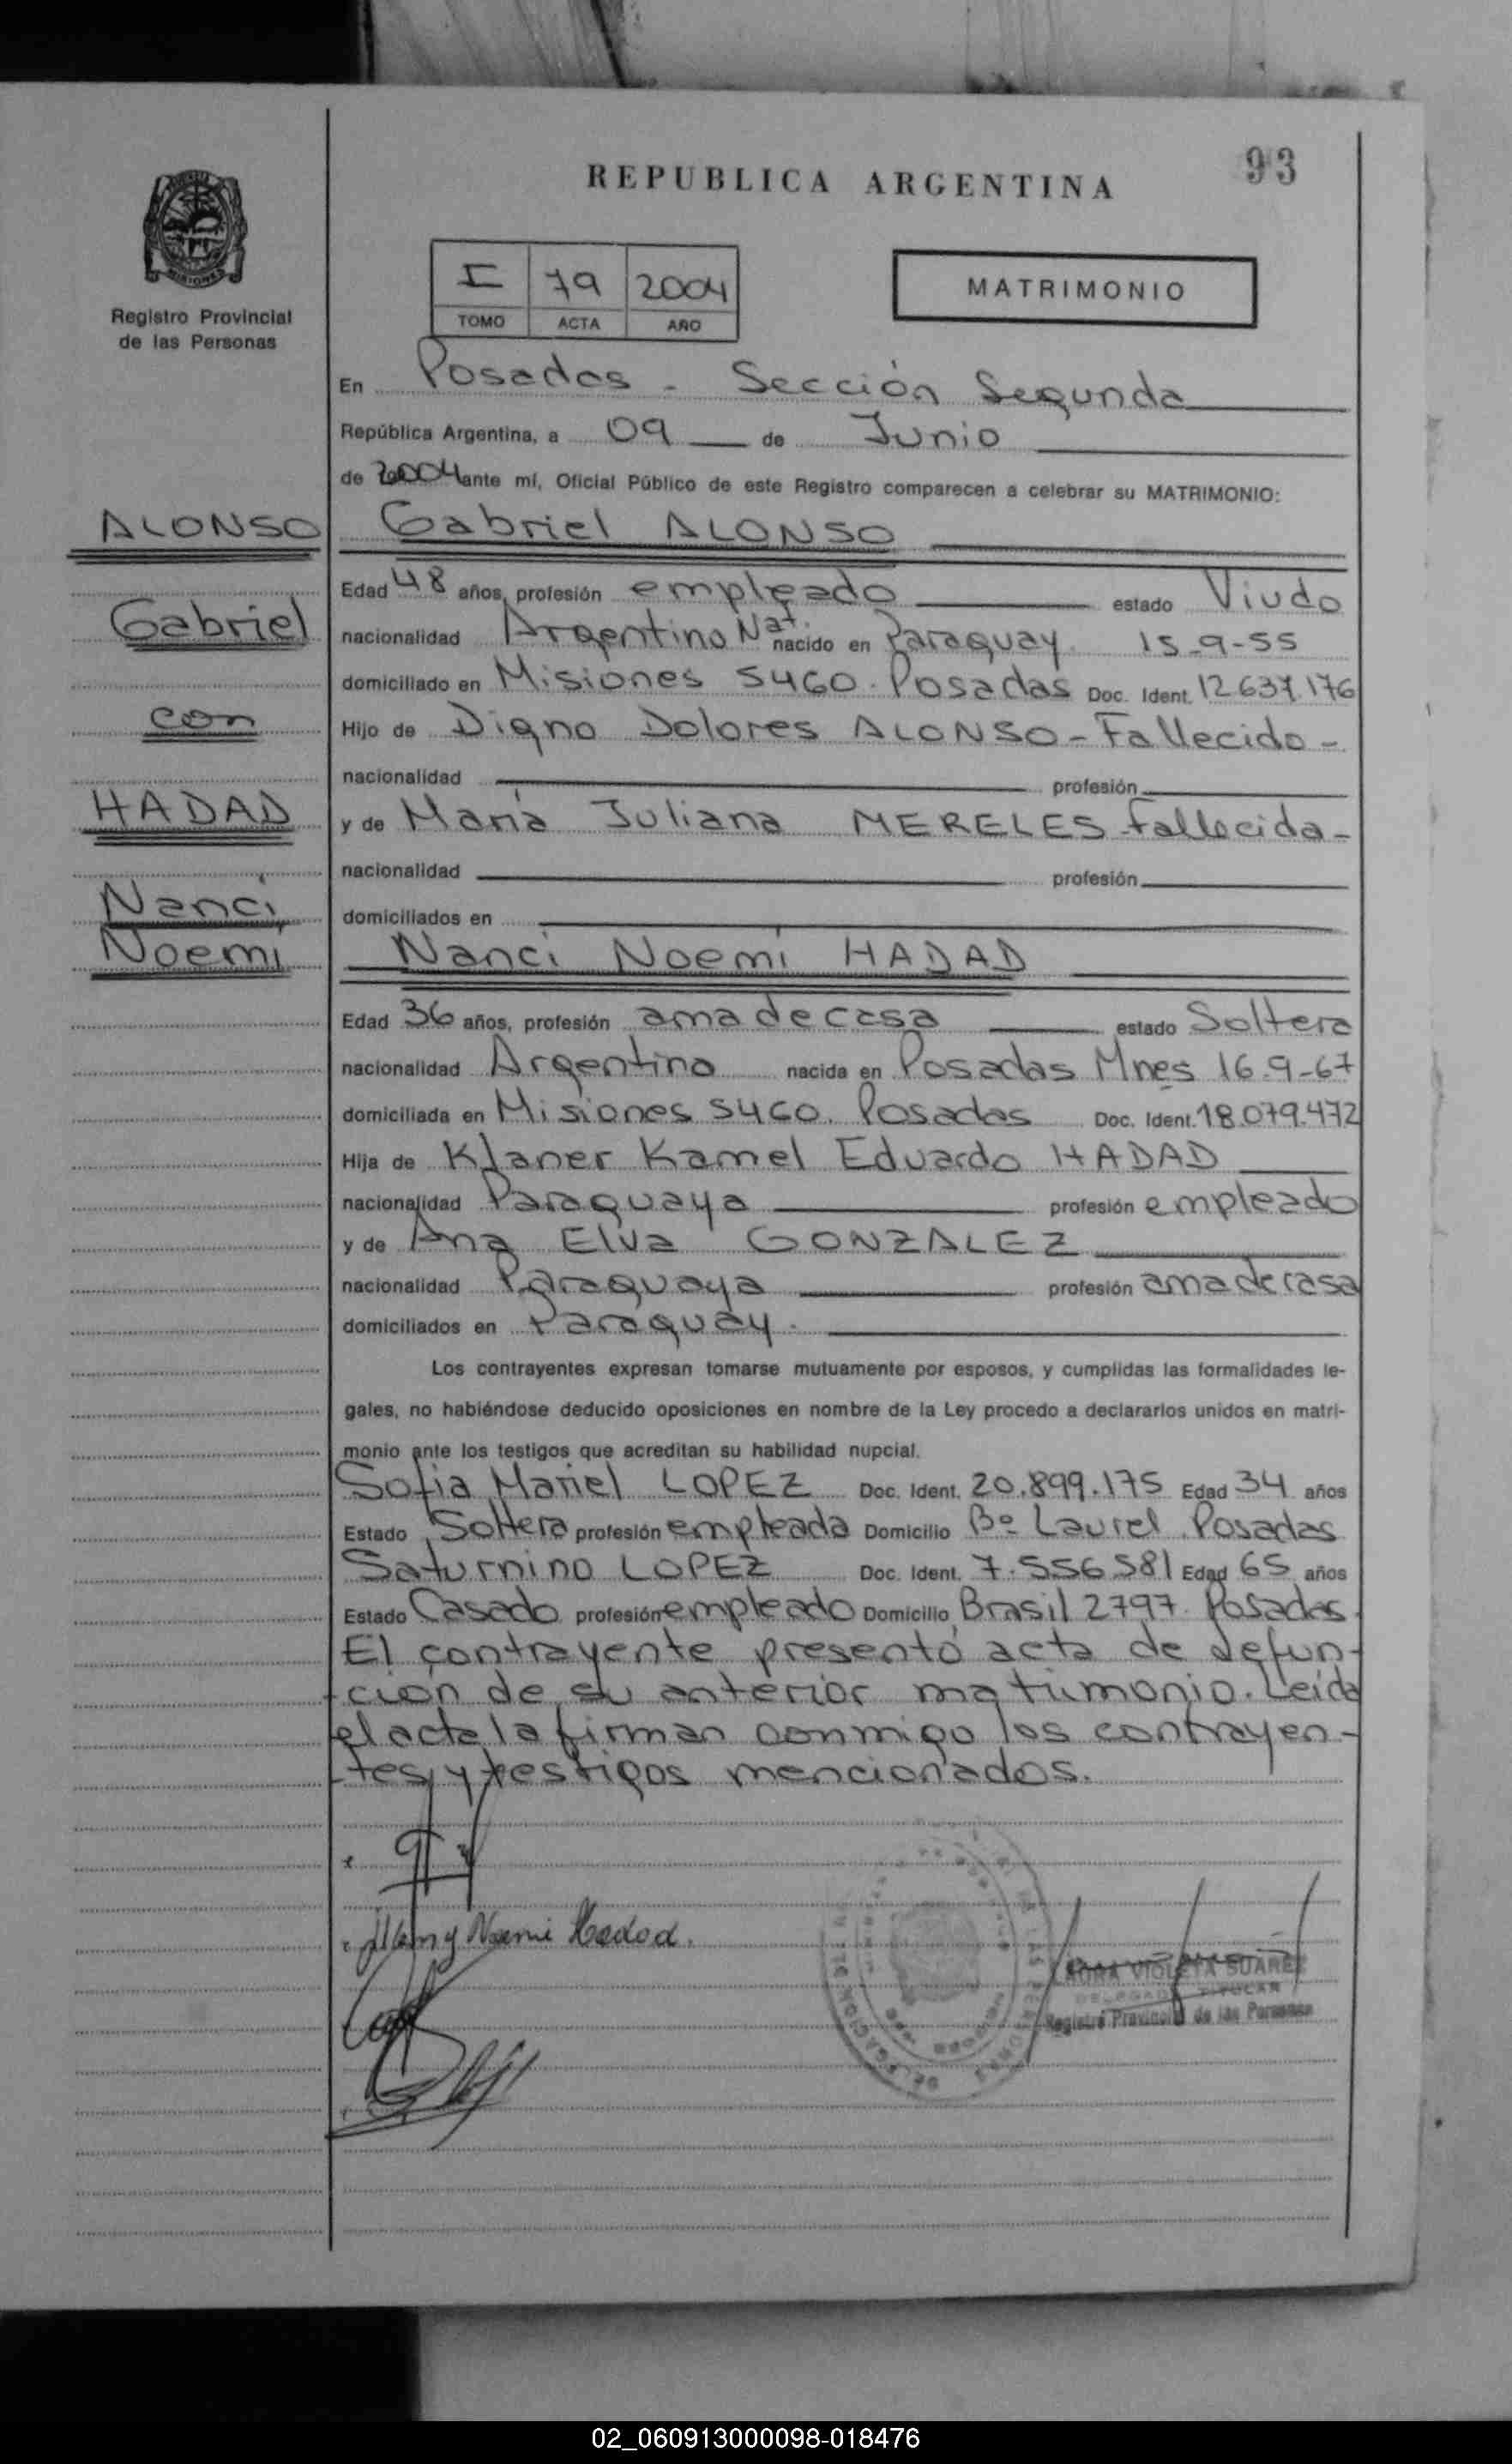 93
REPUBLICA ARGENTINA
MISIONES
Registro Provincial
de las Personas
I 79 2004
TOMO ACTA AÑO
MATRIMONIO
En Posadas - Sección Segunda
República Argentina, a 09 de Junio
de 2004 ante mí, Oficial Público de este Registro comparecen a celebrar su MATRIMONIO:
ALONSO
Gabriel
con
HADAD
Nanci
Noemí
Gabriel ALONSO
Edad 48 años, profesión empleado estado Viudo
nacionalidad Argentino Nat. nacido en Paraguay 15-9-55
domiciliado en Misiones 5460. Posadas Doc. Ident. 12.637.176
Hijo de Digno Dolores ALONSO - Fallecido -
nacionalidad profesión
y de María Juliana MERELES - Fallecida -
nacionalidad profesión
domiciliados en
Nanci Noemí HADAD
Edad 36 años, profesión ama de casa estado Soltera
nacionalidad Argentina nacida en Posadas Mnes 16-9-67
domiciliada en Misiones 5460. Posadas Doc. Ident. 18.079.472
Hija de Klaner Kamel Eduardo HADAD
nacionalidad Paraguaya profesión empleado
y de Ana Elva GONZALEZ
nacionalidad Paraguaya profesión ama de casa
domiciliados en Paraguay.
Los contrayentes expresan tomarse mutuamente por esposos, y cumplidas las formalidades le-
gales, no habiéndose deducido oposiciones en nombre de la Ley procedo a declararlos unidos en matri-
monio ante los testigos que acreditan su habilidad nupcial.
Sofia Mariel LOPEZ Doc. Ident. 20.899.175 Edad 34 años
Estado Soltera profesión empleada Domicilio Bº Laurel Posadas
Saturnino LOPEZ Doc. Ident. 7.556.581 Edad 65 años
Estado Casado profesión empleado Domicilio Brasil 2797. Posadas.
El contrayente presentó acta de defun-
ción de su anterior matrimonio. Leída
el acta la firman conmigo los contrayen-
tes y testigos mencionados.
Noemi Hadad.
LAURA VIOLETA SUAREZ
DELEGADA TITULAR
Registro Provincial de las Personas
02_060913000098-018476